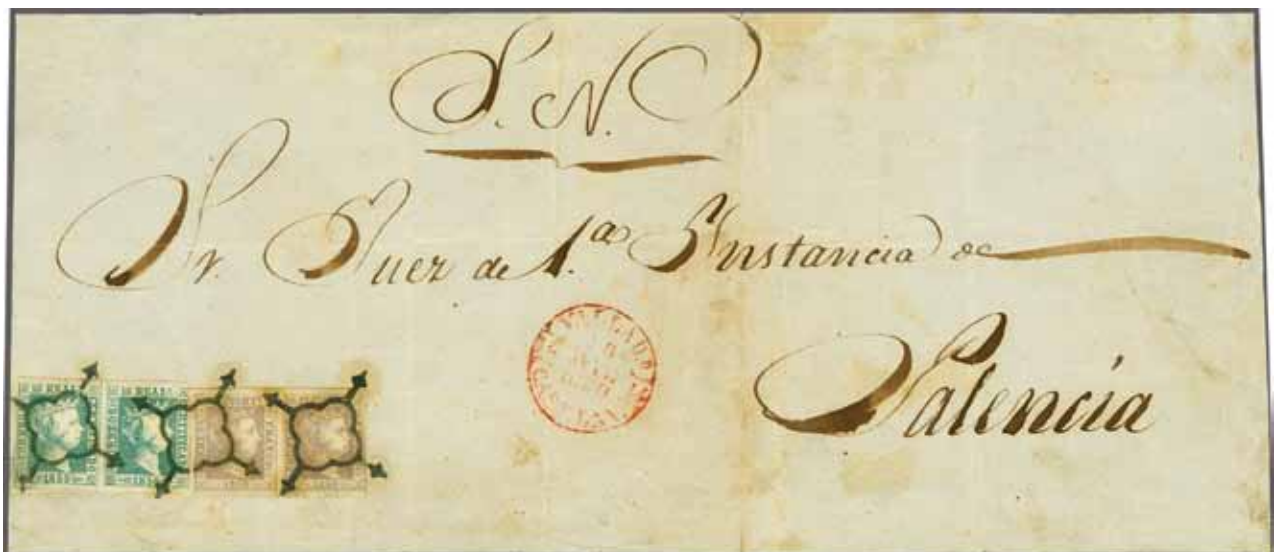 S. N.
Sr. Juez de 1.ª Instancia de
Palencia